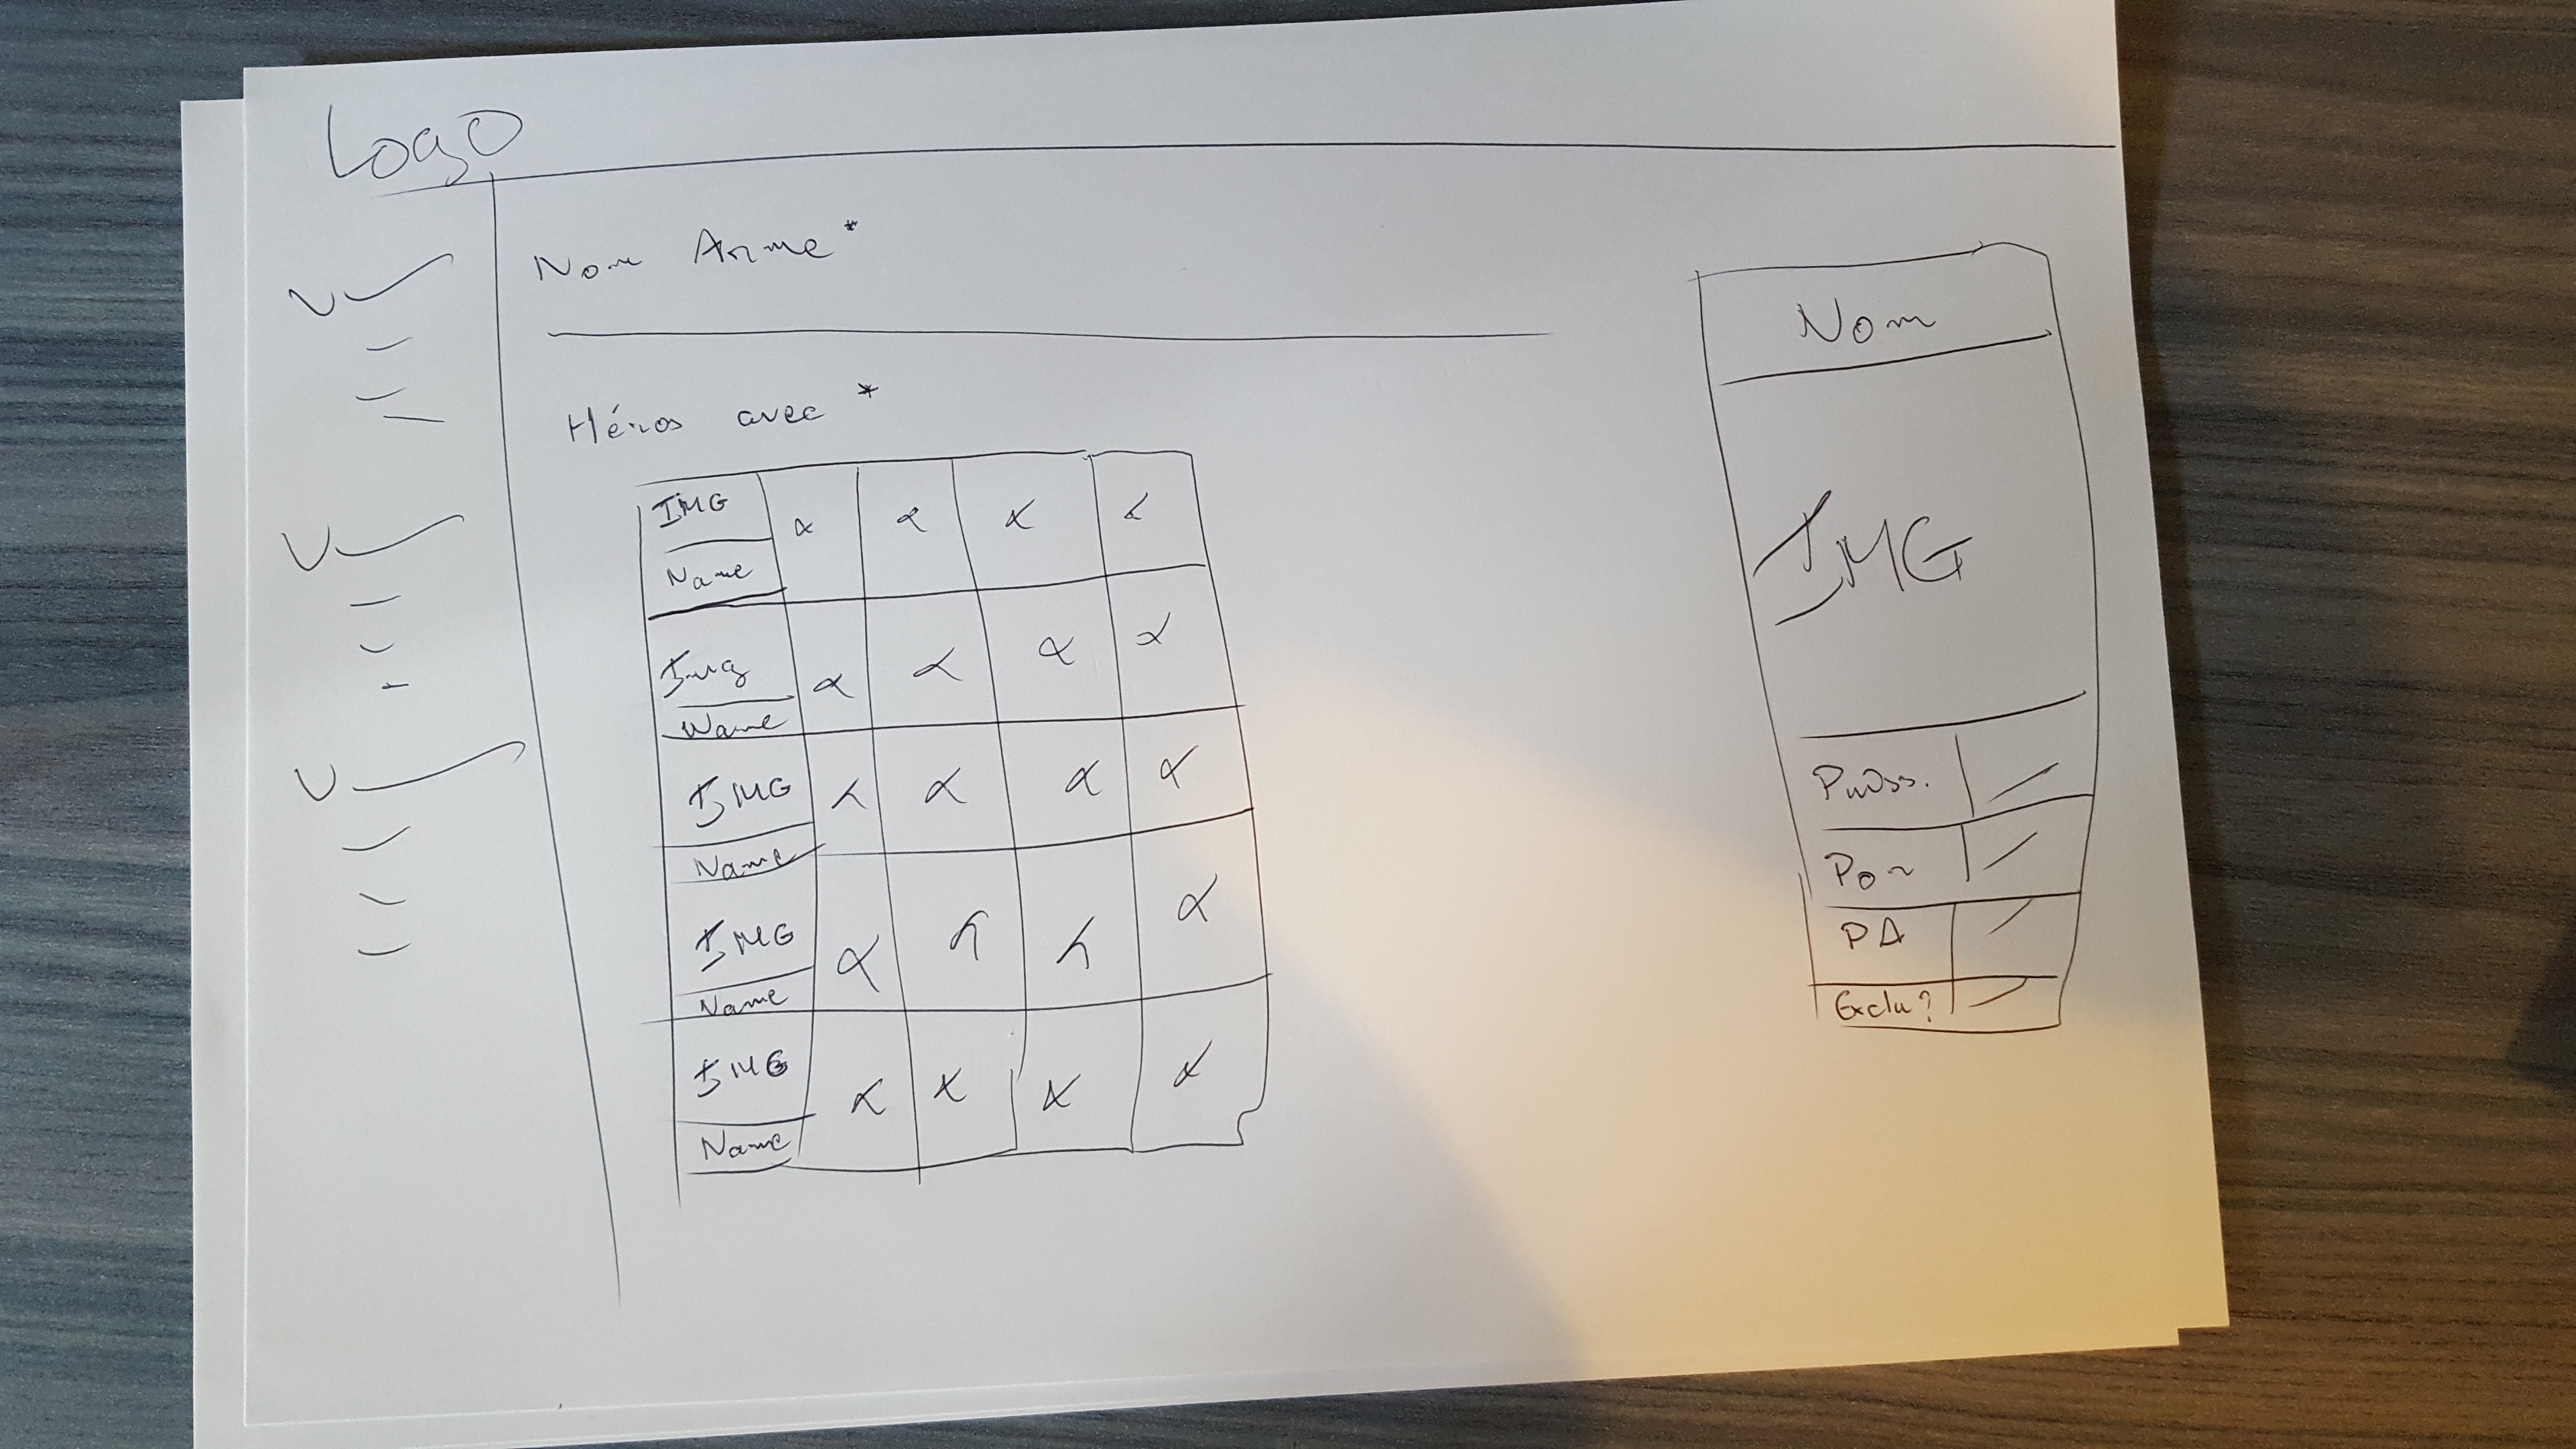 Logo
Nom Arme*
Héros avec *
IMG
Name
x x x x
Img
Name
x x x x
IMG
Name
x x x x
IMG
Name
x x x x
IMG
Name
x x x x
Nom
IMG
Puiss.
Por
PA
Exclu?